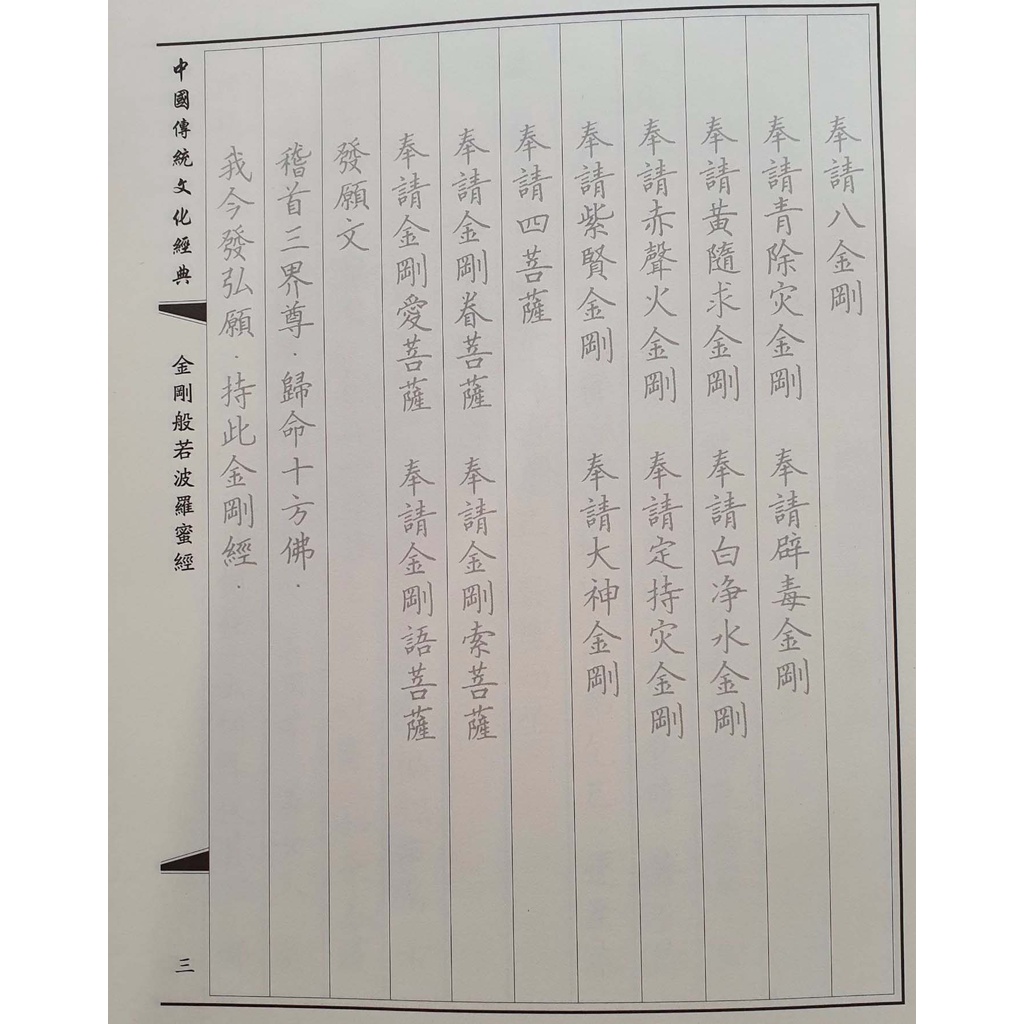 奉請八金剛
奉請青除灾金剛　奉請辟毒金剛
奉請黃隨求金剛　奉請白净水金剛
奉請赤聲火金剛　奉請定持灾金剛
奉請紫賢金剛　奉請大神金剛
奉請四菩薩
奉請金剛眷菩薩　奉請金剛索菩薩
奉請金剛愛菩薩　奉請金剛語菩薩
發願文
稽首三界尊．歸命十方佛．
我今發弘願．持此金剛經．
中國傳統文化經典
金剛般若波羅蜜經
三